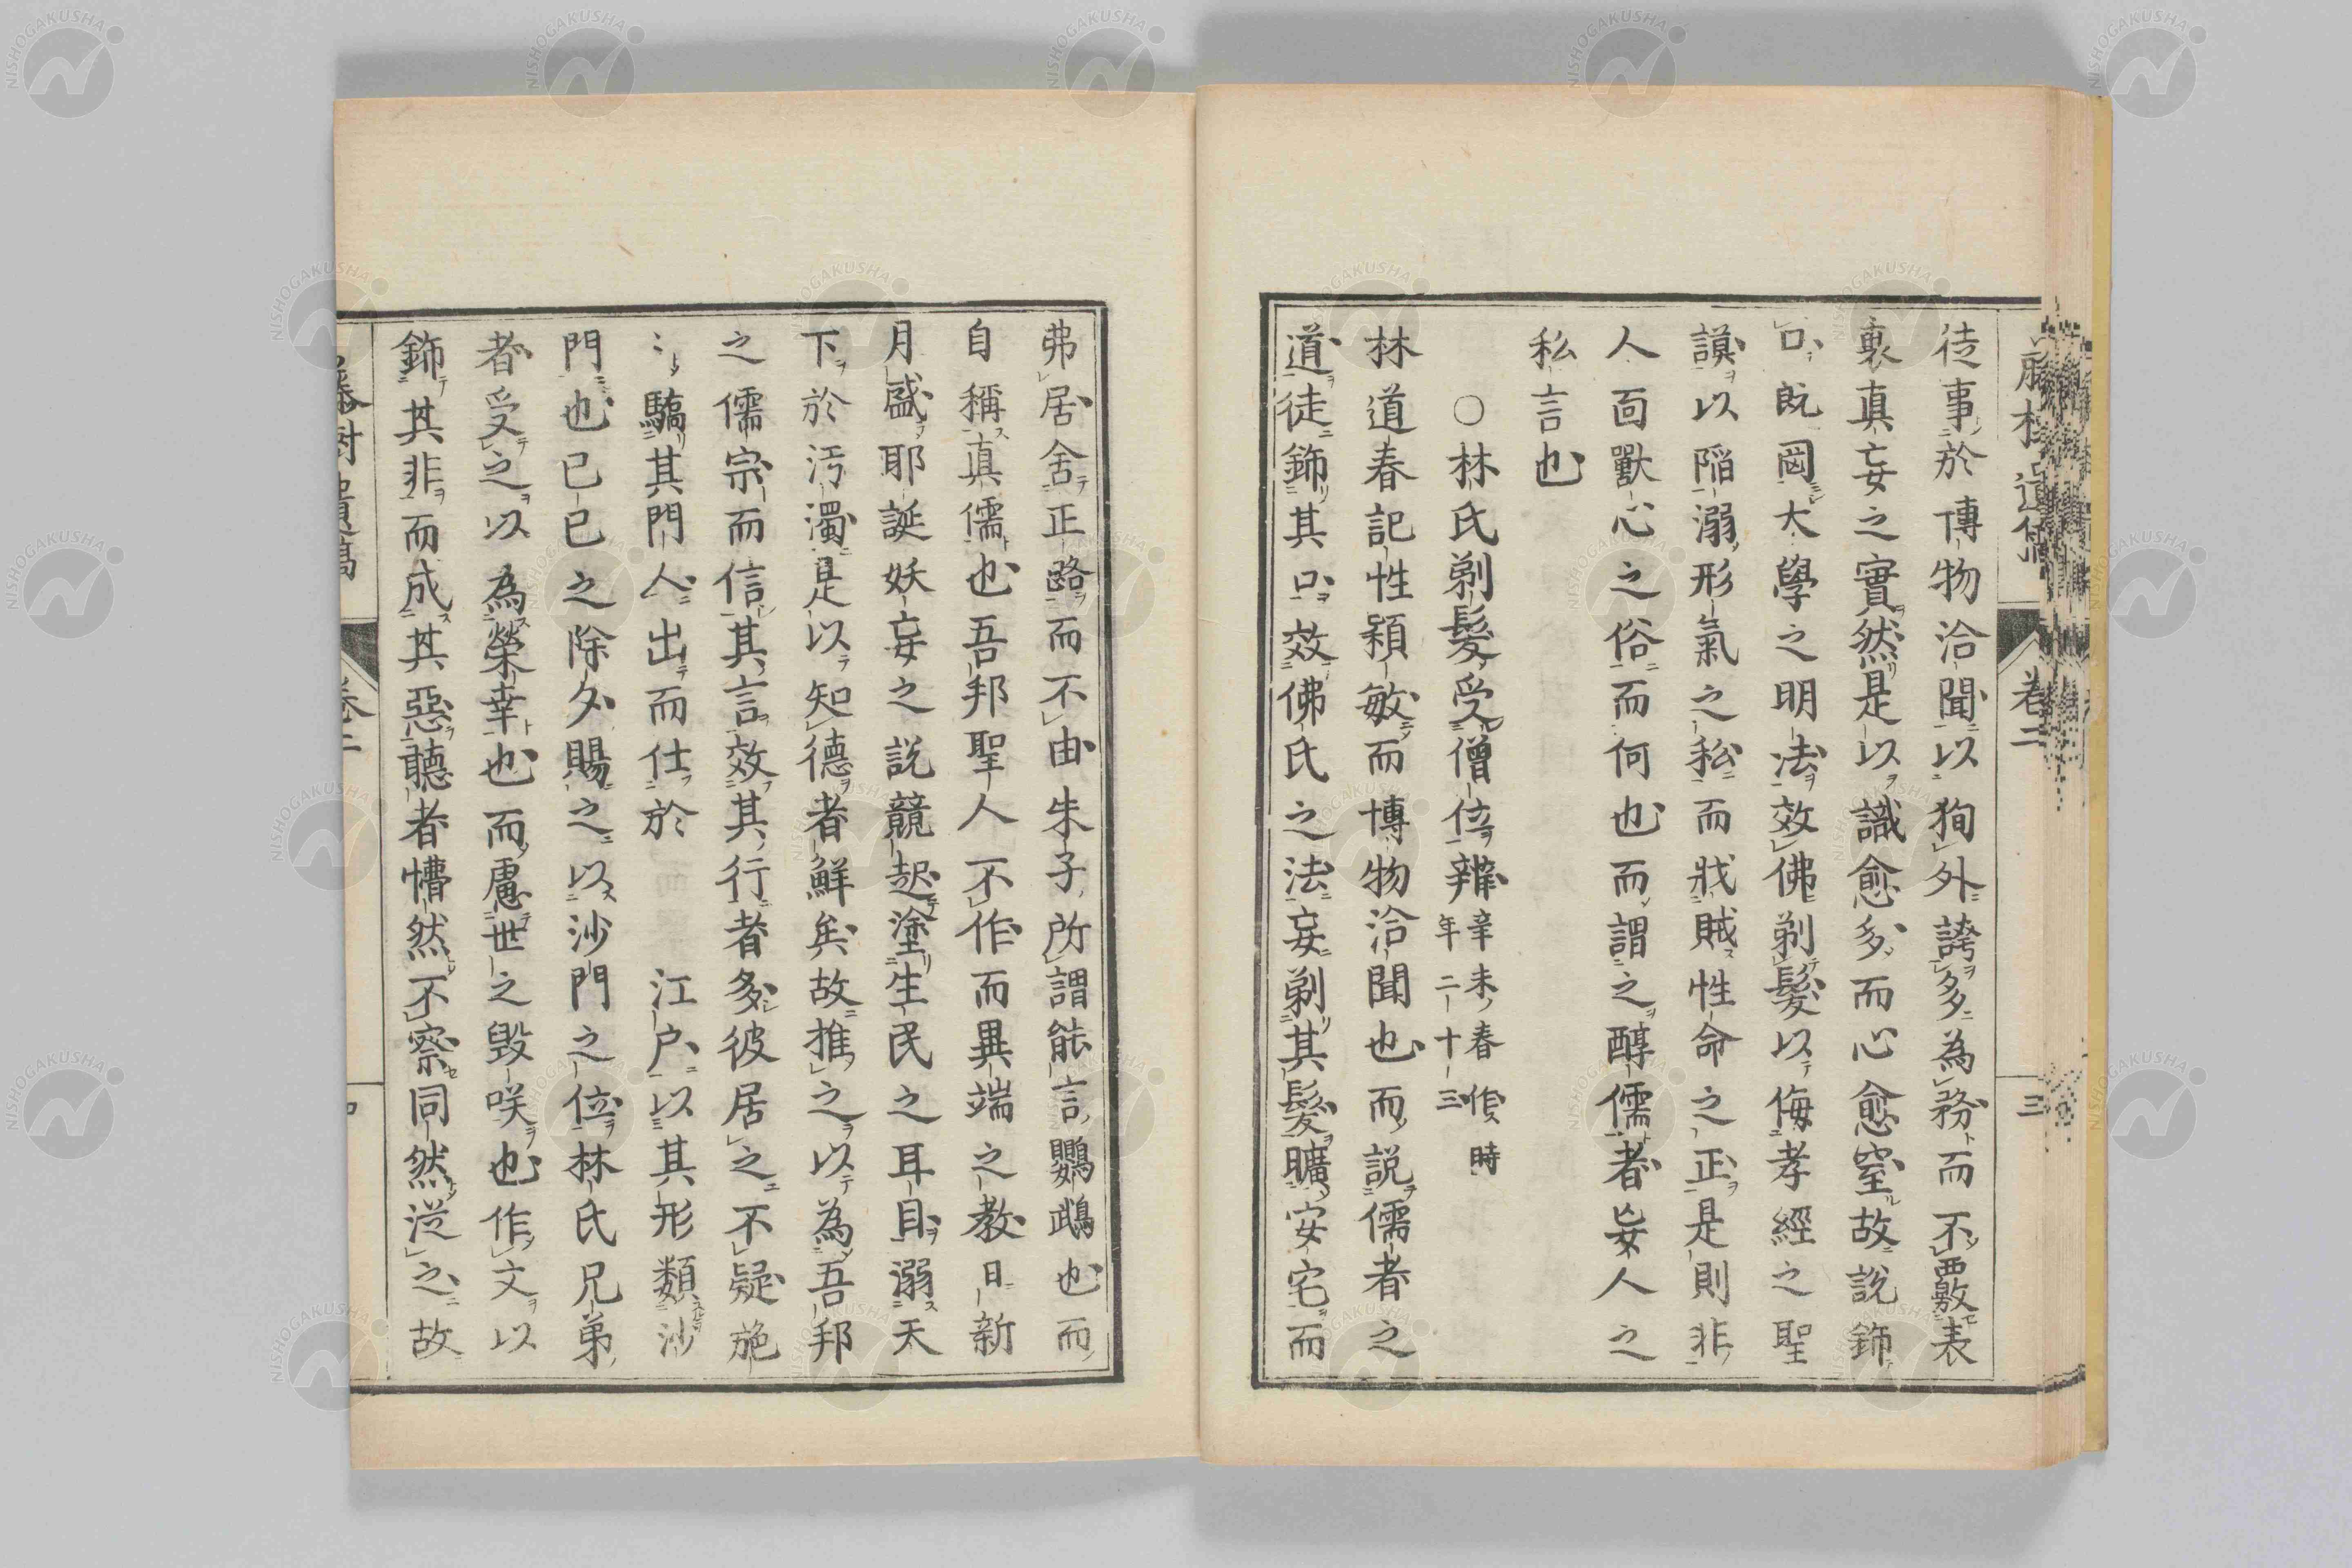 徒事於博物洽聞以狥外誇多為務而不覈表
裏真妄之實然是以識愈多而心愈窒故説飾
口既罔大學之明法效佛剃髪以侮孝經之聖
謨以陥溺形氣之私而戕賊性命之正是則非
人面獸心之俗而何也而謂之醇儒者妄人之
私言也
○林氏剃髪受僧位辨
辛未春作時
年二十三
林道春記性穎敏而博物洽聞也而説儒者之
道徒飾其口效佛氏之法妄剃其髪曠安宅而
弗居舍正路而不由朱子所謂能言鸚鵡也而
自稱真儒也吾邦聖人不作而異端之教日新
月盛耶誕妖妄之説競起塗生民之耳目溺天
下於汚濁是以知德者鮮矣故推之以為吾邦
之儒宗而信其言效其行者多彼居之不疑施
〻驕其門人出而仕於　江戸以其形類沙
門也已已之除夕賜之以沙門之位林氏兄弟
者受之以為榮幸也而慮世之毀咲也作文以
飾其非而成其惡聽者懵然不察同然従之故
卷二
三
NISHOGAKUSHA